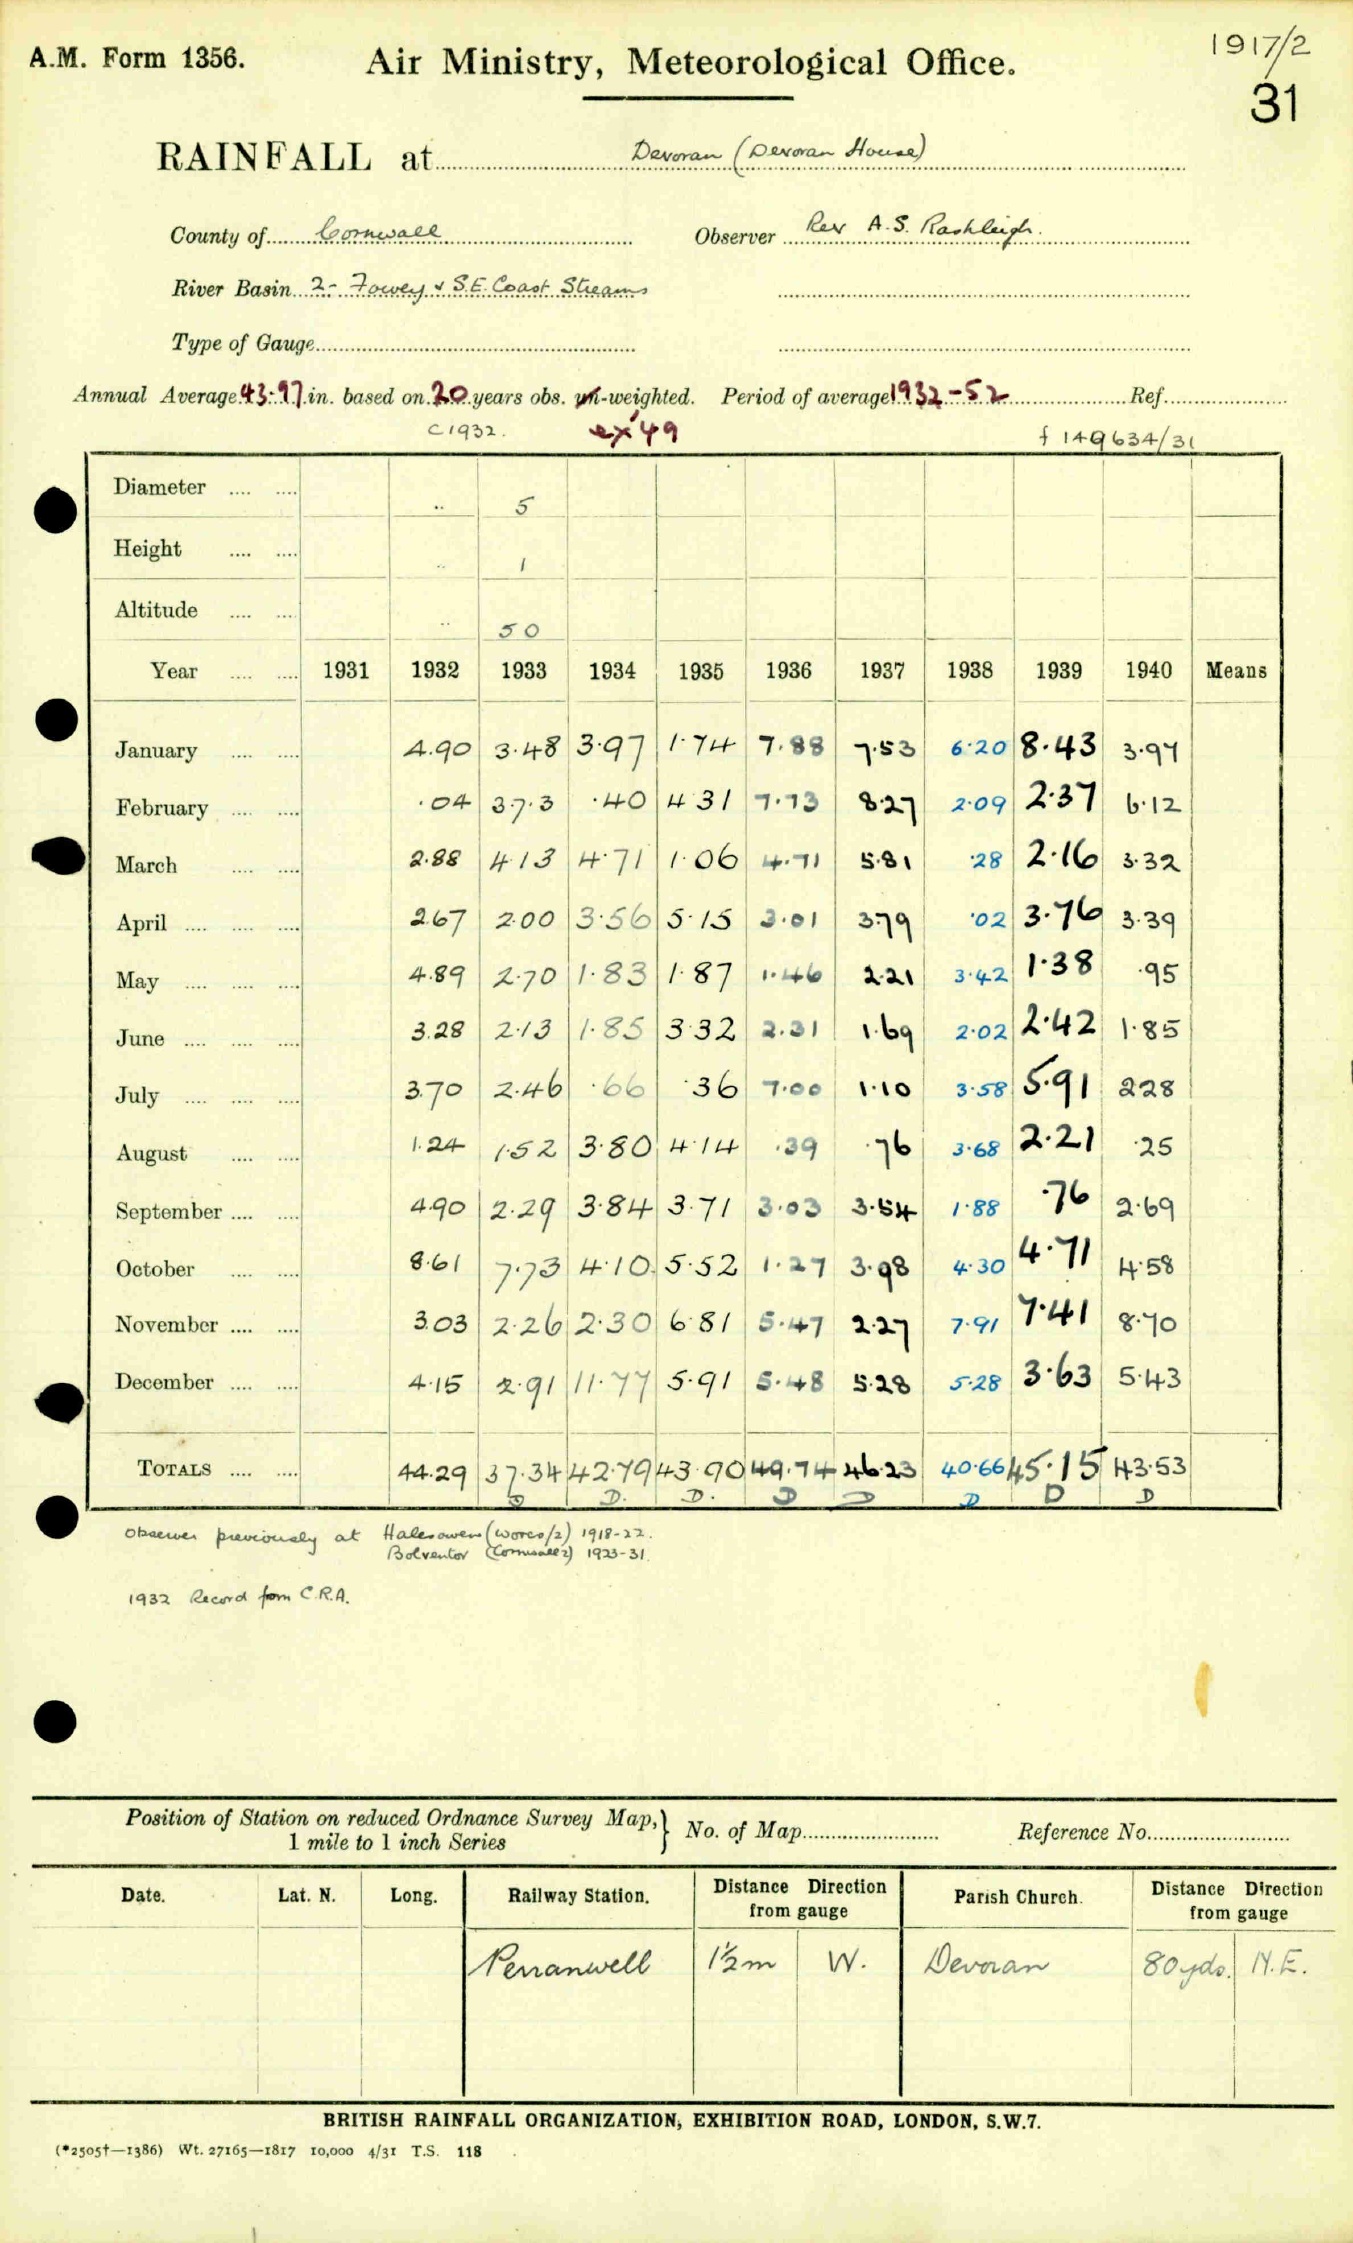 A.M. Form 1356.
Air Ministry, Meteorological Office.
1917/2
31
RAINFALL at Devoran (Devoran House)
County of Cornwall Observer Rev A.S. Rashleigh.
River Basin 2- Fowey & S.E. Coast Streams
Type of Gauge
Annual Average 43.97 in. based on 20 years obs. un-weighted. Period of average 1932-52 Ref.
C1932. ex '49 f 149634/31
Diameter .... .... .. 5
Height .... .... .. 1
Altitude .... .... .. 50
Year .... .... 1931 1932 1933 1934 1935 1936 1937 1938 1939 1940 Means
January .... .... 4.90 3.48 3.97 1.74 7.88 7.53 6.20 8.43 3.97
February .... .... .04 37.3 .40 4 31 7.73 8.27 2.09 2.37 6.12
March .... .... 2.88 4 13 4.71 1.06 4.71 5.81 .28 2.16 3.32
April .... .... .... 2.67 2.00 3.56 5.15 3.01 3.79 .02 3.76 3.39
May .... .... .... 4.89 2.70 1.83 1.87 1.46 2.21 3.42 1.38 .95
June .... .... .... 3.28 2.13 1.85 3.32 2.31 1.69 2.02 2.42 1.85
July .... .... .... 3.70 2.46 .66 .36 7.00 1.10 3.58 5.91 2.28
August .... .... 1.24 1.52 3.80 4.14 .39 .76 3.68 2.21 .25
September .... .... 4.90 2.29 3.84 3.71 3.03 3.54 1.88 .76 2.69
October .... .... 8.61 7.73 4.10 5.52 1.27 3.98 4.30 4.71 4.58
November .... .... 3.03 2.26 2.30 6.81 5.47 2.27 7.91 7.41 8.70
December .... .... 4.15 2.91 11.77 5.91 5.48 5.28 5.28 3.63 5.43
TOTALS .... .... 44.29 37.34 42.79 43.90 49.74 46.23 40.66 45.15 43.53
D D. D. D D D D D
Observer previously at Halesowen (Worcs/2) 1918-22.
Bolventor (Cornwall 2) 1923-31.
1932 Record from C.R.A.
Position of Station on reduced Ordnance Survey Map, } No. of Map Reference No.
1 mile to 1 inch Series
Date. Lat. N. Long. Railway Station. Distance Direction from gauge Parish Church. Distance Direction from gauge
Perranwell 1½m W. Devoran 80yds. N.E.
BRITISH RAINFALL ORGANIZATION, EXHIBITION ROAD, LONDON, S.W.7.
(*2505†—1386) Wt. 27165—1817 10,000 4/31 T.S. 118